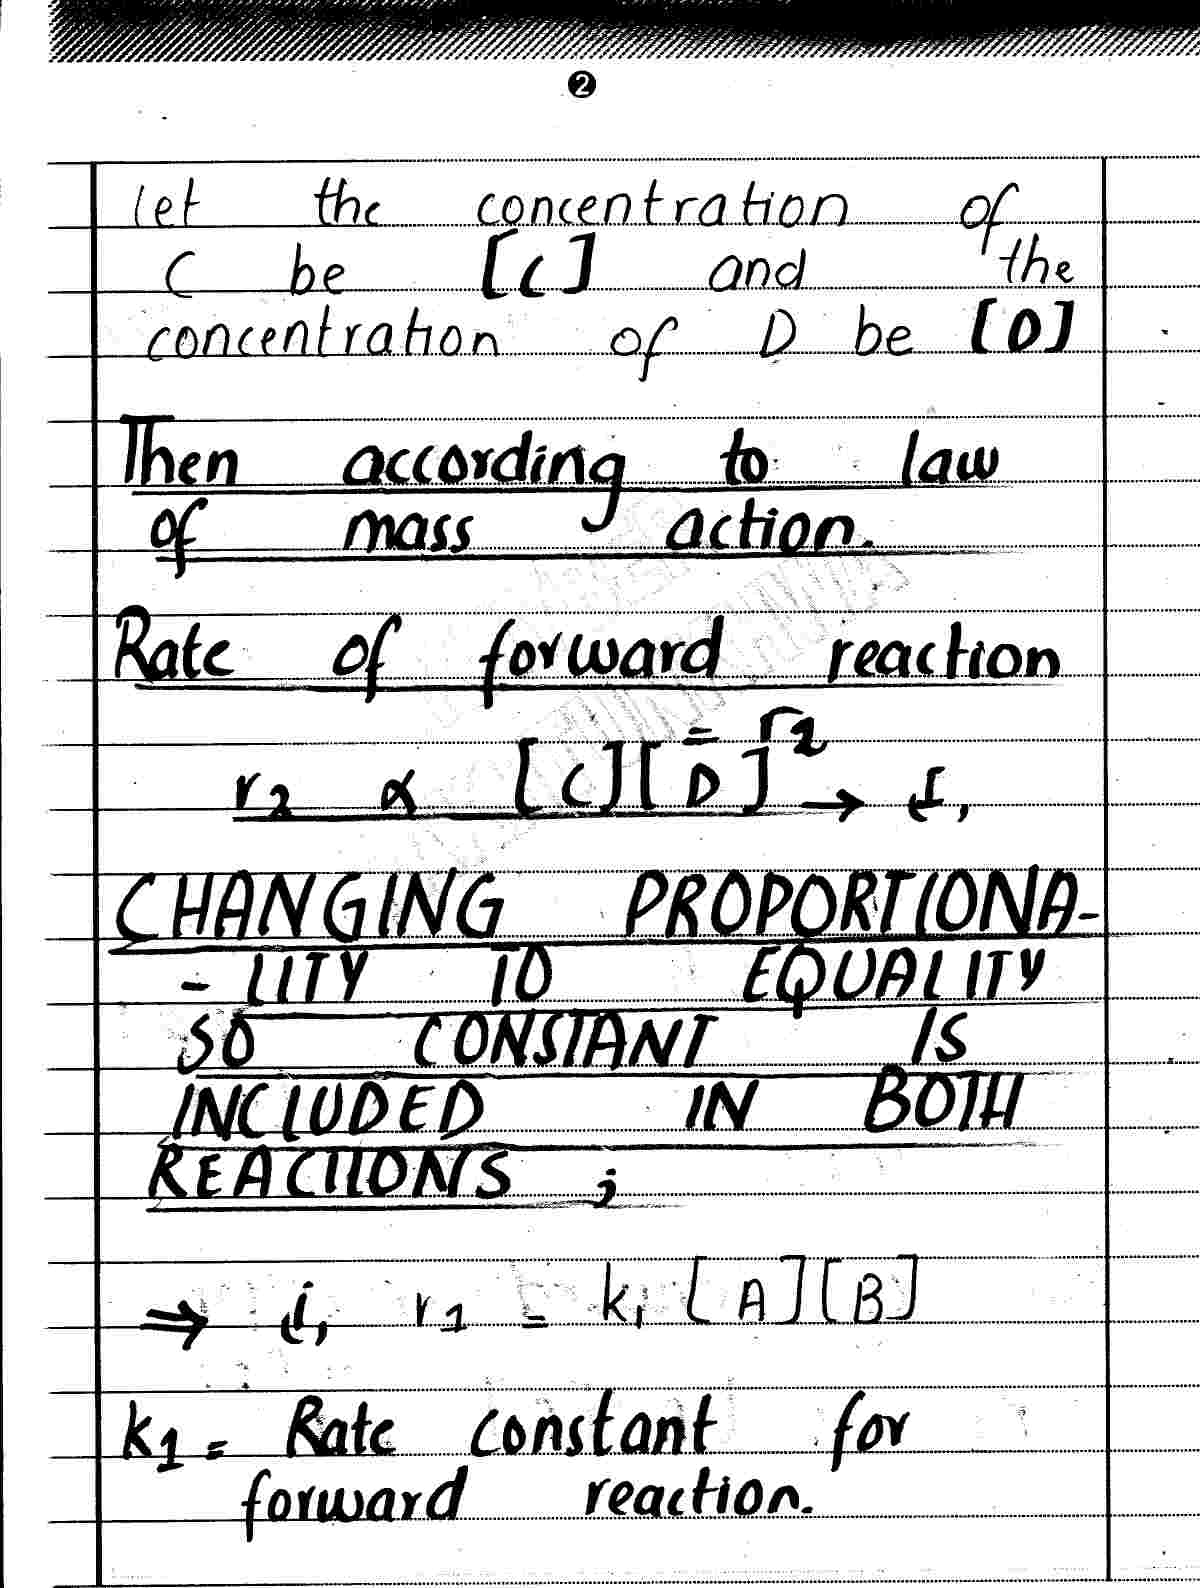 2
let the concentration of
C be [C] and the
concentration of D be [D]
Then according to law
of mass action.
Rate of forward reaction
r2 ∝ [C][D] r2 →
CHANGING PROPORTIONA-
- LITY TO EQUALITY
SO CONSTANT IS
INCLUDED IN BOTH
REACTIONS ;
⇒ i, r1 = k1 [A][B]
k1 = Rate constant for
forward reaction.